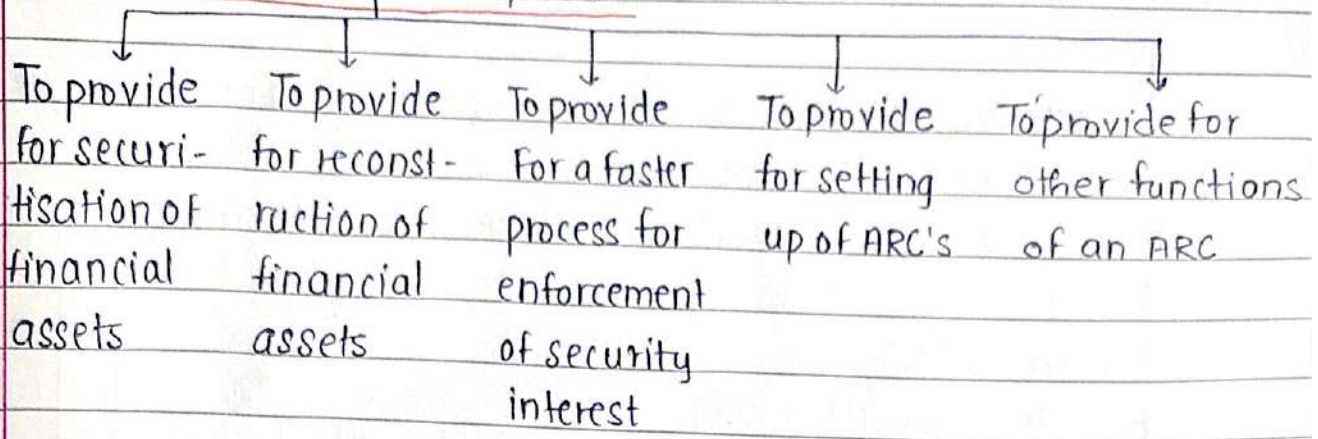 To provide
for securi-
tisation of
financial
assets
To provide
for reconst-
ruction of
financial
assets
To provide
For a faster
process for
enforcement
of security
interest
To provide
for setting
up of ARC's
To provide for
other functions
of an ARC